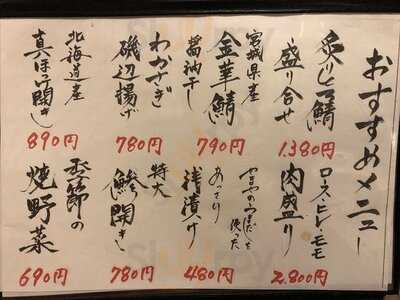 おすすめメニュー
炙りしめ鯖
盛り合せ
1.380円
宮城県産
金華鯖
醤油干し
790円
わかさぎ
磯辺揚げ
780円
北海道産
真ほっけ開き
890円
ロース・ヒレ・モモ
肉盛り
2.800円
やまやのつゆだしを
使った
あっさり
浅漬け
480円
特大
鯵開き
780円
季節の
焼野菜
690円